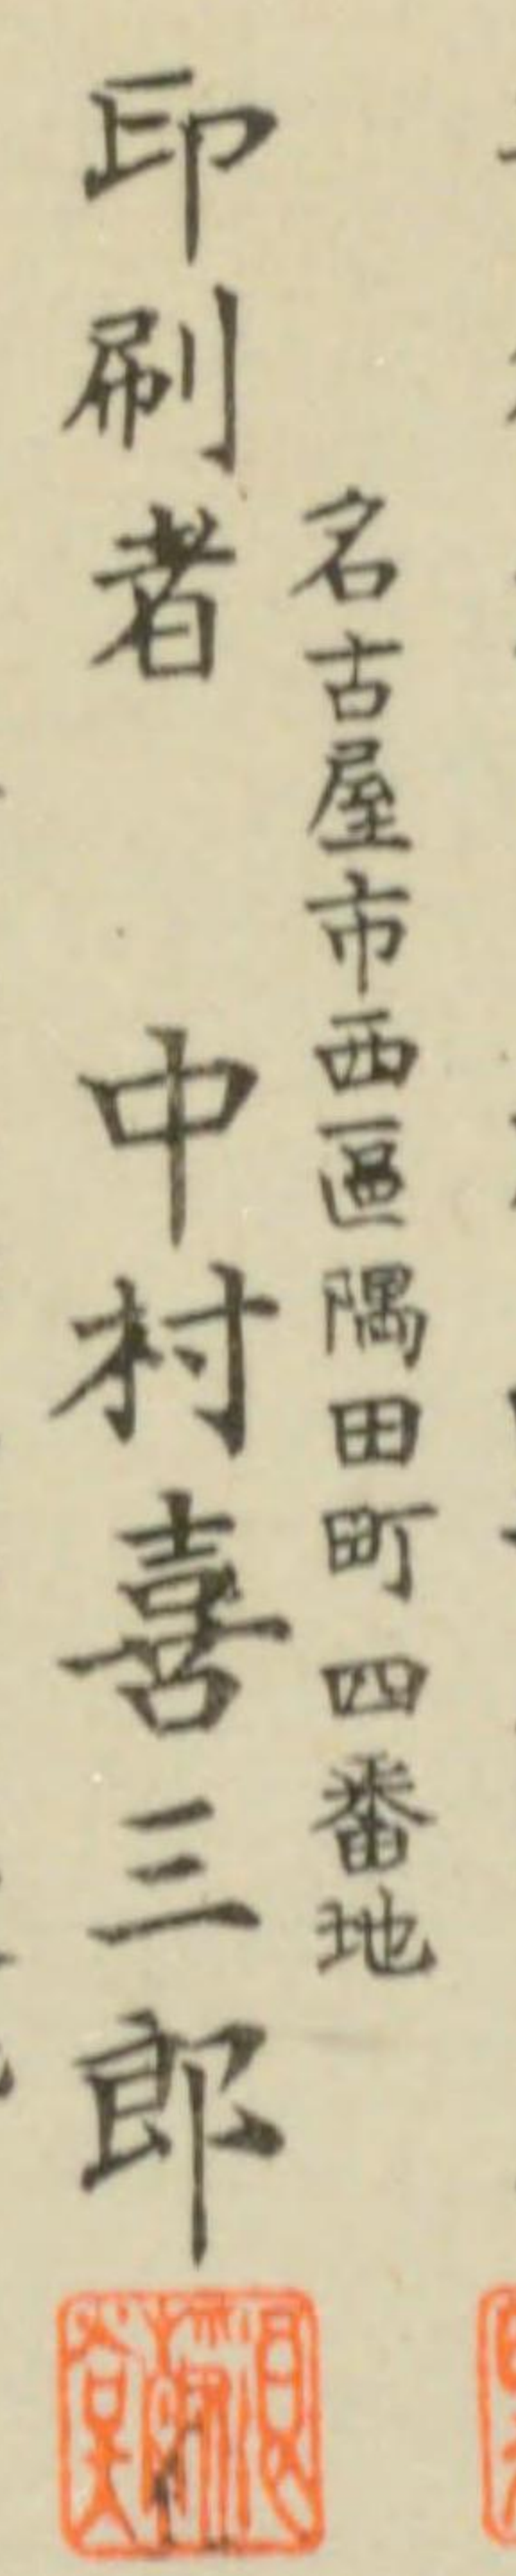 名古屋市西區隅田町四番地
印刷者 中村喜三郎